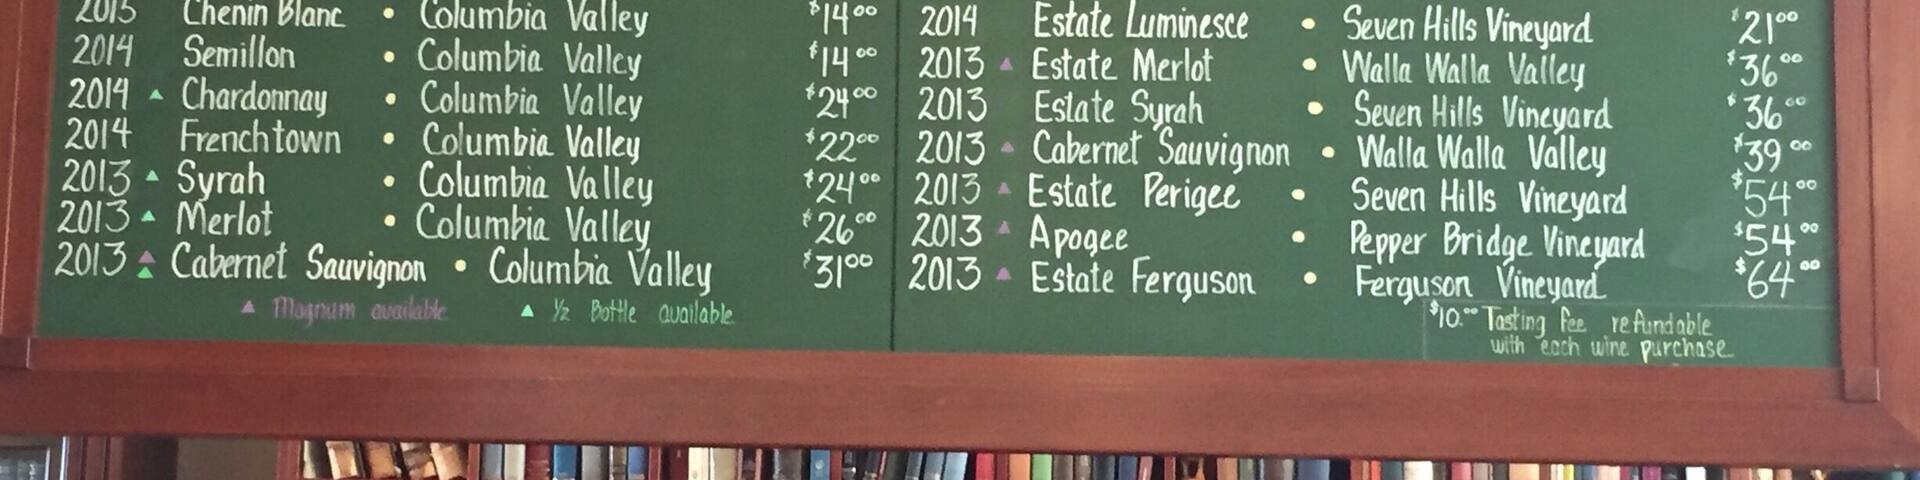 2015 Chenin Blanc • Columbia Valley $14⁰⁰
2014 Semillon • Columbia Valley $14⁰⁰
2014 ▲ Chardonnay • Columbia Valley $24⁰⁰
2014 Frenchtown • Columbia Valley $22⁰⁰
2013 ▲ Syrah • Columbia Valley $24⁰⁰
2013 ▲ Merlot • Columbia Valley $26⁰⁰
2013 ▲ Cabernet Sauvignon • Columbia Valley $31⁰⁰
▲ Magnum available ▲ ½ Bottle available
2014 Estate Luminesce • Seven Hills Vineyard $21⁰⁰
2013 ▲ Estate Merlot • Walla Walla Valley $36⁰⁰
2013 Estate Syrah • Seven Hills Vineyard $36⁰⁰
2013 ▲ Cabernet Sauvignon • Walla Walla Valley $39⁰⁰
2013 ▲ Estate Perigee • Seven Hills Vineyard $54⁰⁰
2013 ▲ Apogee • Pepper Bridge Vineyard $54⁰⁰
2013 ▲ Estate Ferguson • Ferguson Vineyard $64⁰⁰
$10.⁰⁰ Tasting fee refundable
with each wine purchase